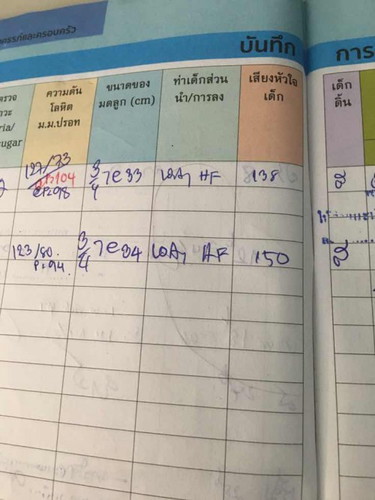 และครอบครัว
บันทึก
การ
ความดัน
โลหิต
ม.ม.ปรอท
ขนาดของ
มดลูก (cm)
ท่าเด็กส่วน
นำ/การลง
เสียงหัวใจ
เด็ก
เด็ก
ดิ้น
ria/
sugar
127/73
P=98
3/4 7c 33
HF
138
ดี
123/80
P=94
3/4 7c 34
HF
150
ดี